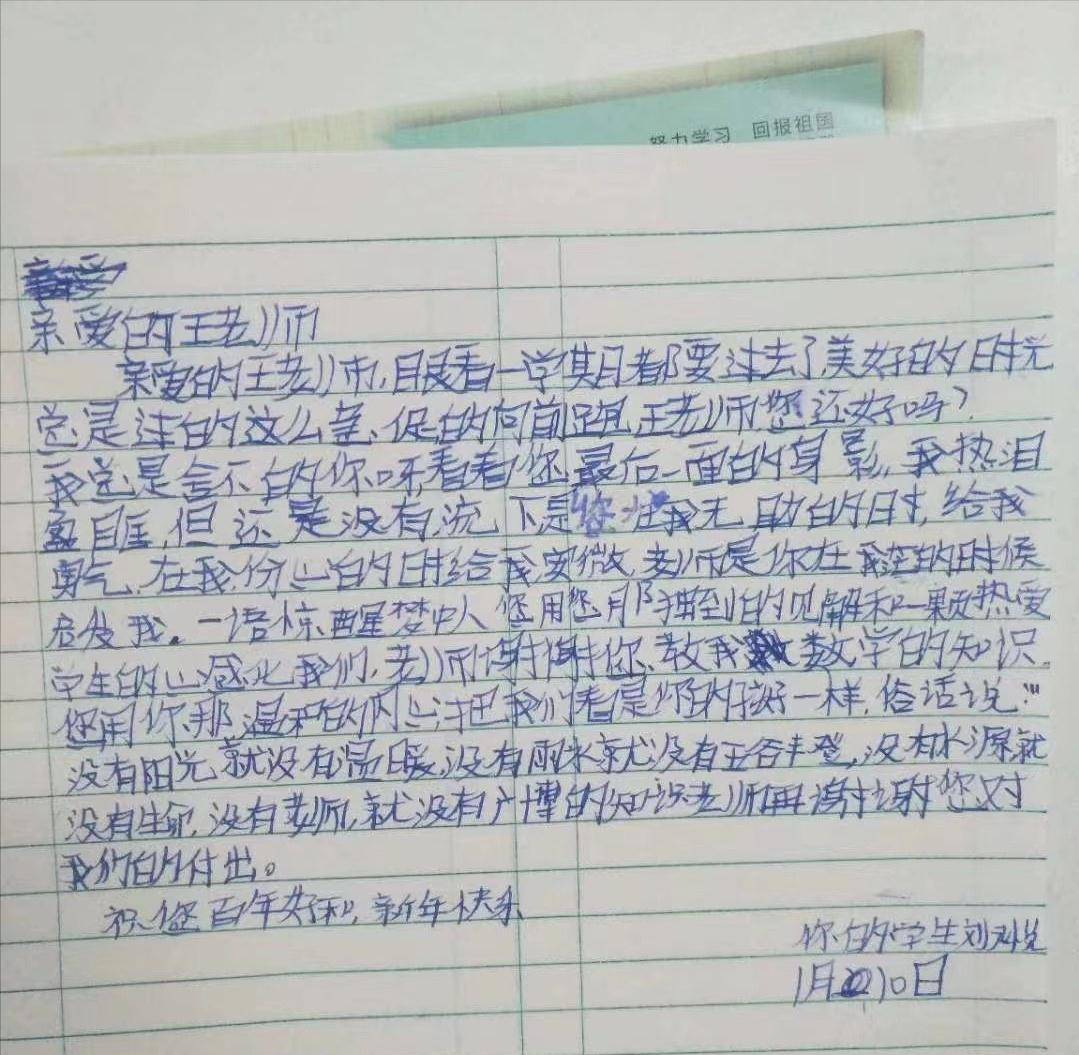 努力学习 回报祖国
亲爱的王老师
亲爱的王老师,眼看一学期都要过去了,美好的时光
总是过的这么,促的向前跑,王老师您还好吗?
我总是舍不的你呀,看着您最后一面的身影,我热泪
盈眶,但还是没有流下是您在我无助的时,给我
勇气,在我份心的时给我安微,老师是你在我的时候
启发我。一语惊醒梦中人 您用您那到的见解和一颗热爱
学生的心感化我们,老师谢谢你、教我数学的知识.
您用你那温和的内心把我们看是你的孩好一样,俗话说:"
没有阳光就没有温暖,没有雨水就没有五谷丰登,没有水源就
没有生命,没有老师,就没有广博的知识老师再谢谢您对
我们的付出。
祝您百年好和,新年快乐
你的学生刘
1月10日